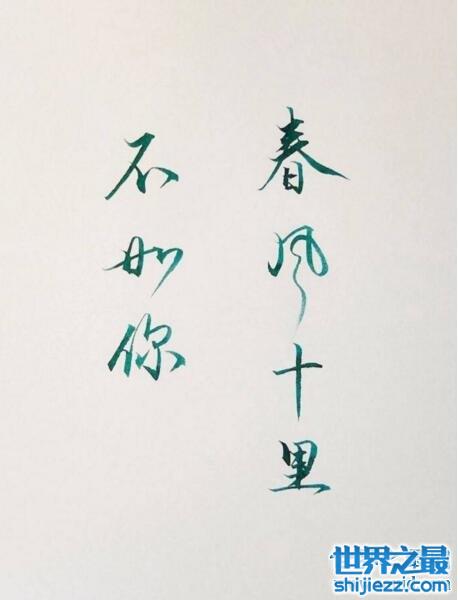 春风十里
不如你
世界之最
shijiezzi.com